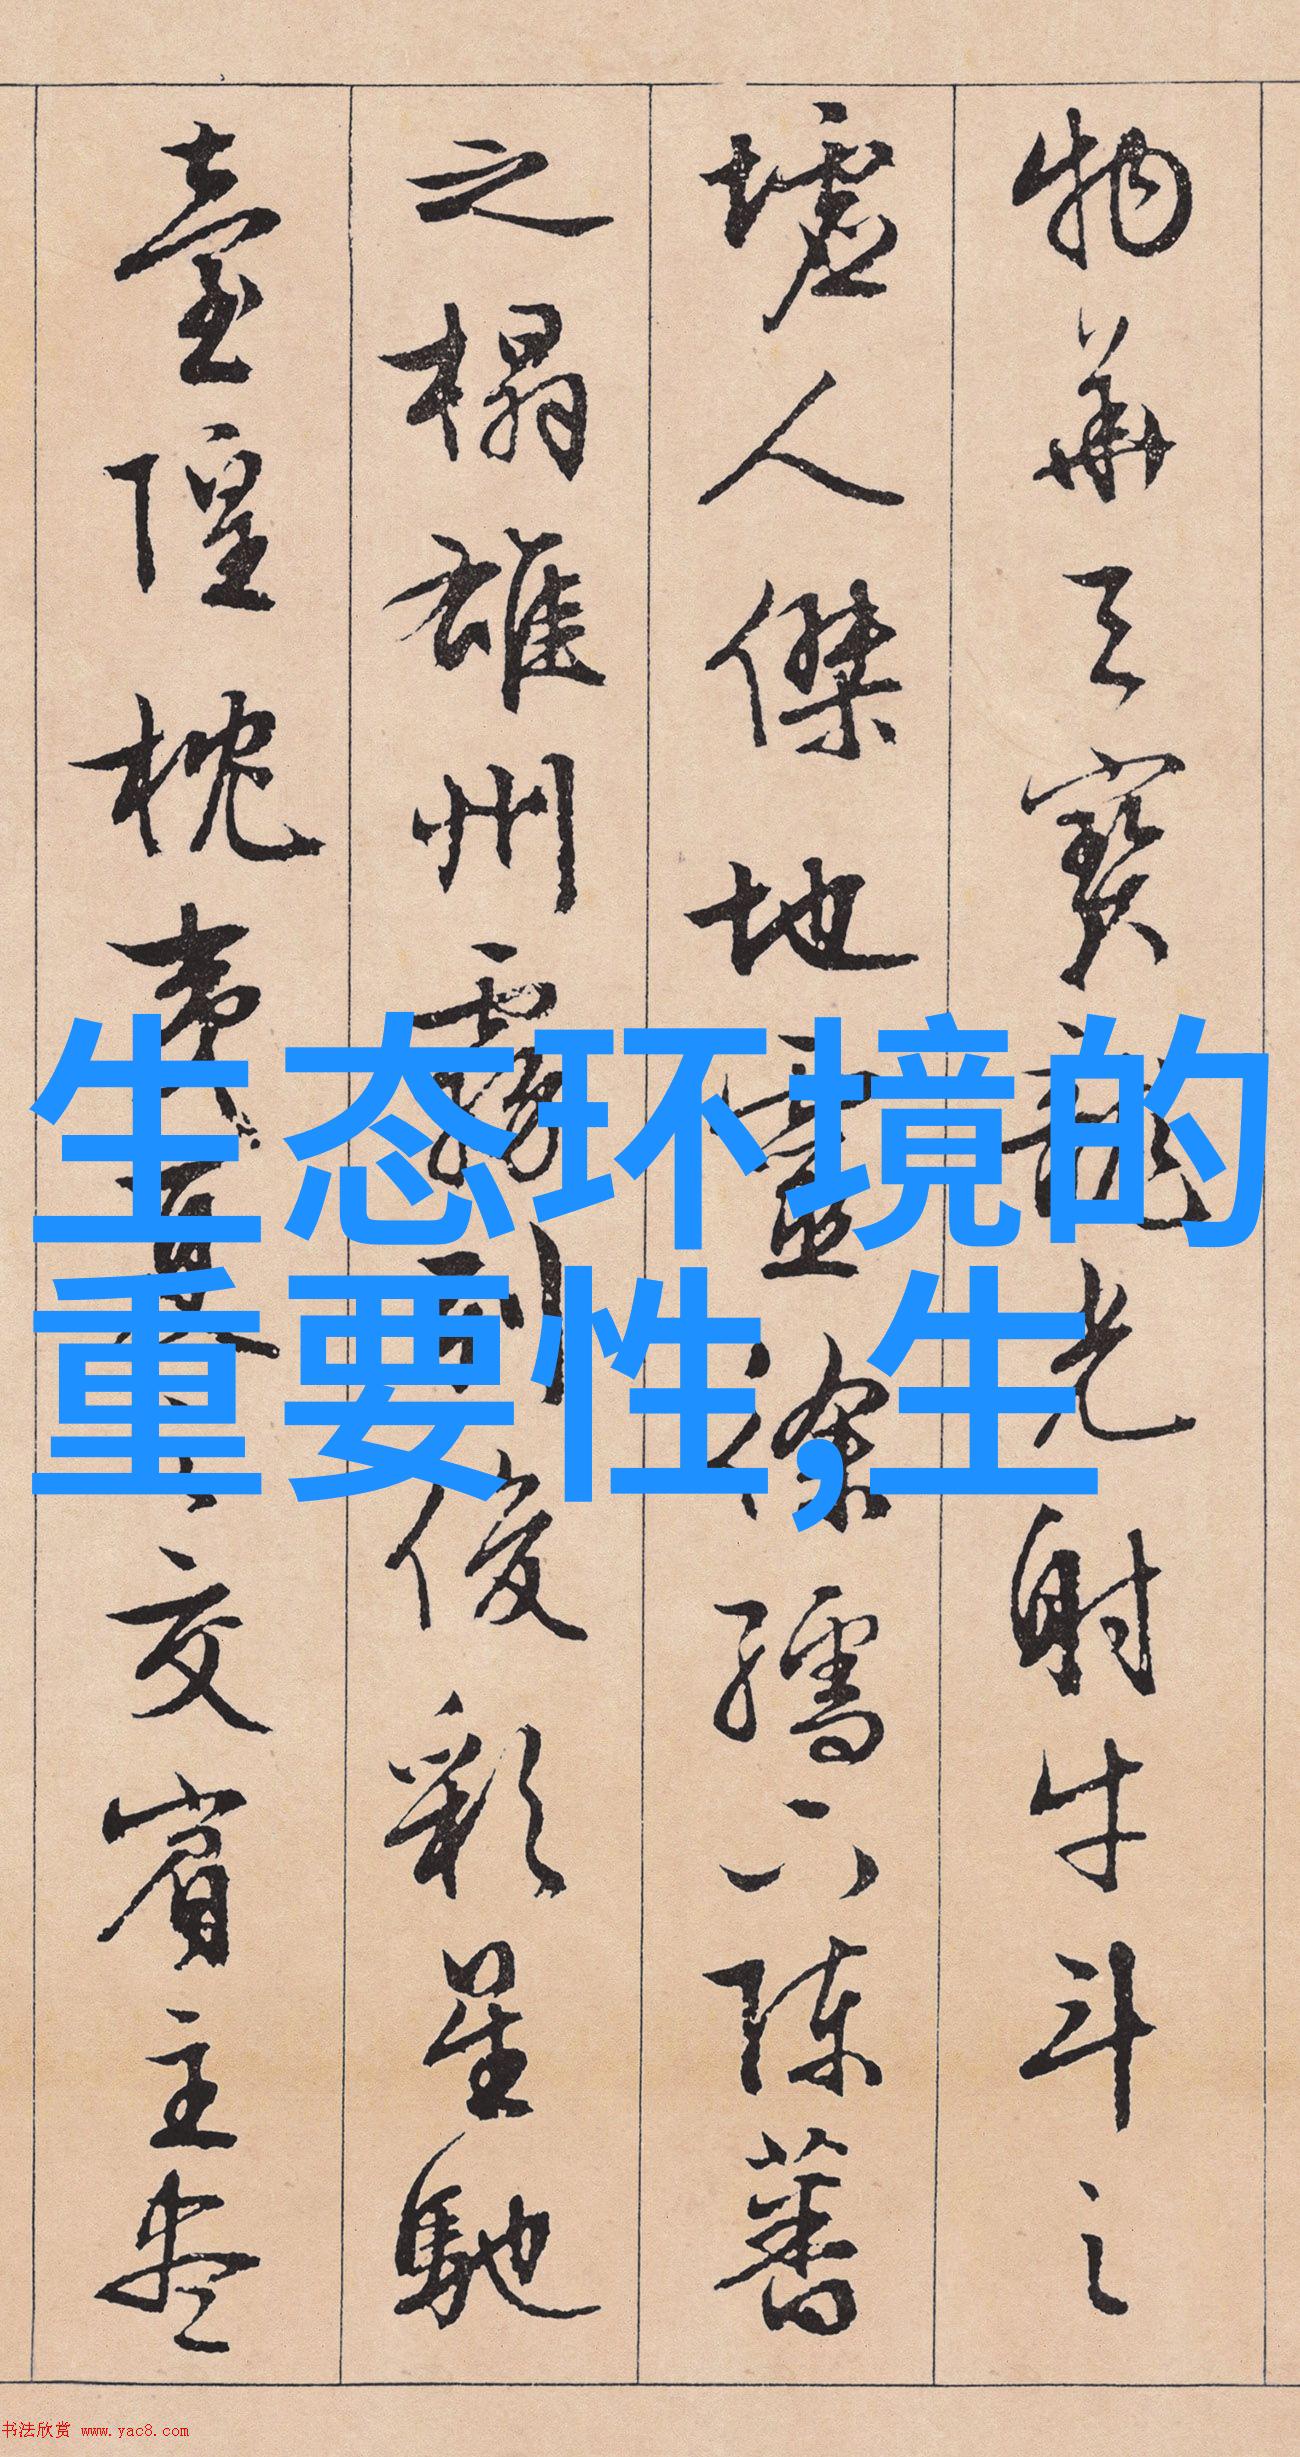 物華天寶龍光射牛斗之
墟人傑地靈徐孺下陳蕃
之榻雄州霧列俊彩星馳
臺隍枕夷夏之交賓主盡
生态环境的
重要性,生
书法欣赏 www.yac8.com